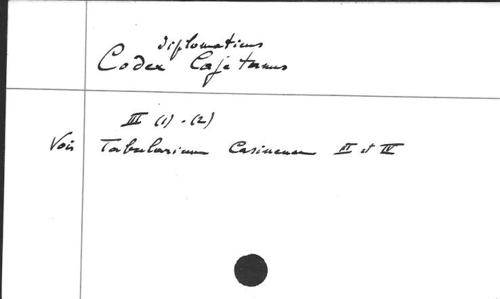 diplomaticus
Codex Cajetanus
III (1) - (2)
Voir Tabularium Casinense III et IV